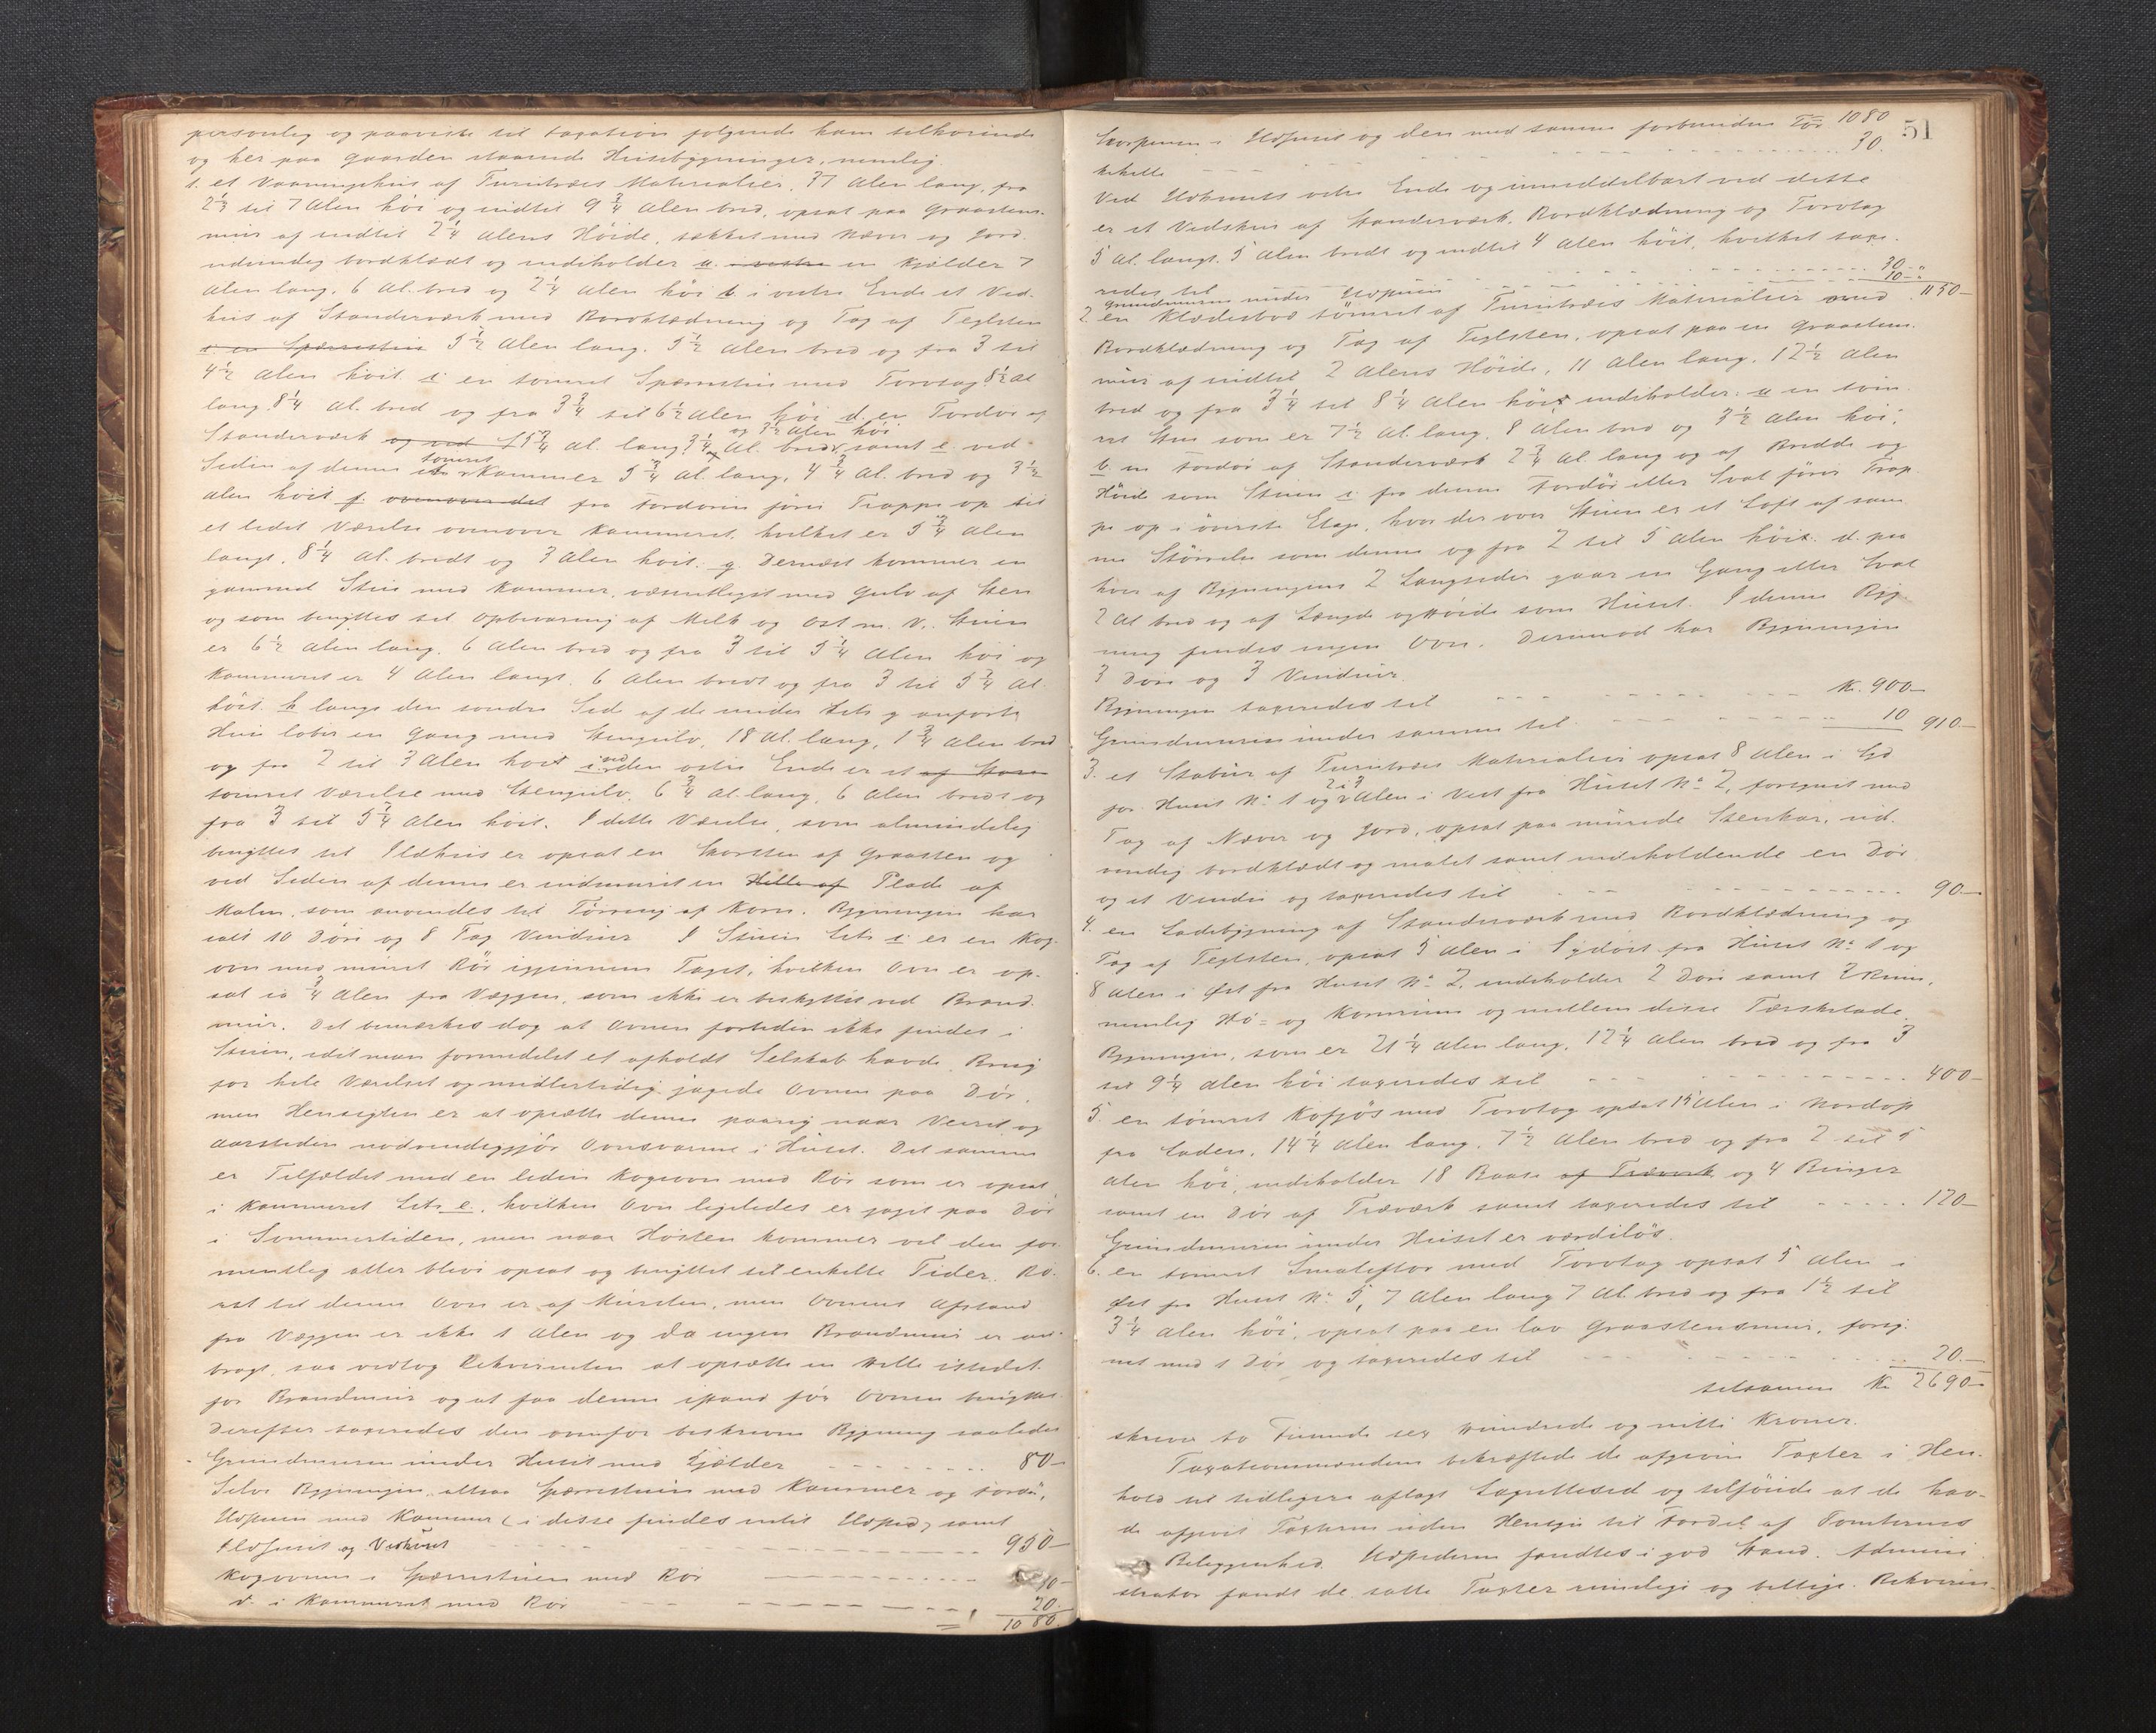 personlig og paaviste til taxation følgende ham tilhørende
og her paa Gaarden staaende Husebygninger, nemlig.
1. et Vaaningshus af Furutræes Materialier, 37 Alen lang, fra
2½ til 7 Alen høi og indtil 9¾ Alen bred, opsat paa Graastens-
mur af indtil 2¼ Alens Høide, tækket med Næver og Jord.
udvendig bordklædt og indeholder a. i vestre en Kjælder 7
Alen lang, 6 Al. bred og 2¼ Alen høi b i vestre Ende et Ved-
hus af Standerværk med Bordklædning og Tag af Teglsten
c. en Spærrestue 5½ Alen lang. 5½ Alen bred og fra 3 til
4½ Alen høit. c en tømret Spærrestue med Torvtag 8½ Al
lang. 8¼ Al. bred og fra 3¾ til 6½ Alen høi d. en Fordør af
Standerværk og ved 5¾ Al. lang. 3¼ Al. bred og 3½ Alen høi samt e. ved
Siden af denne tømret Kammer 5¾ Al. lang, 4¾ Al. bred og 3½
Alen høit f. ovenover det fra Fordøren fører Trappe op til
et lidet Værelse ovenover Kammeret, hvilket er 5¾ Alen
langt, 8¼ Al. bredt og 3 Alen høit. g. Dernæst kommer en
gammel Stue med Kammer, væsentligst med Gulv af Sten
og som benyttes til Opbevaring af Melk og Ost m. v. Stuen
er 6½ Alen lang, 6 Alen bred og fra 3 til 5¼ Alen høi og
Kammeret er 4 Alen langt, 6 Alen bredt og fra 3 til 5¼ Al.
høit. h langs den søndre Side af de under Litr g anførte
Huse løber en Gang med Stengulv, 18 Al. lang, 1¾ Alen bred
og fra 2 til 3 Alen høi i. ved den østre Ende er et af Sten
tømret Værelse med Stengulv, 6¾ Al. lang, 6 Alen bredt og
fra 3 til 5¼ Alen høit. I dette Værelse, som almindelig
benyttes til Ildhus er opsat en Skorsten af Graasten og
ved Siden af denne er indmuret en Helle af Plade af
Malm, som anvendes til Tørring af Korn. Bygningen har
ialt 10 Døre og 8 Fag Vinduer I Stuen Litr c er en Kog-
ovn med muret Rør igjennem Taget, hvilken Ovn er op-
sat ca ¾ Alen fra Væggen, som ikke er beskyttet ved Brand-
mur. Det bemærkes dog at Ovnen fortiden ikke findes i
Stuen, idet man formedelst et afholdt Selskab havde Brug
for hele Værelset og midlertidig jagede Ovnen paa Dør,
men Hensigten er at opsætte denne paany naar Veiret og
Aarstiden nødvendiggjør Ovnsvarme i Huset. Det samme
er Tilfældet med en liden Kogeovn med Rør som er opsat
i Kammeret Litr e., hvilken Ovn ligeledes er jaget paa Dør
i Sommertiden, men naar Høsten kommer vil den for-
mentlig atter blive opsat og benyttet til enkelte Tider. Rø-
ret til denne Ovn er af Mursten, men Ovnens Afstand
fra Væggen er ikke 1 Alen og da ingen Brandmur er an-
bragt, saa vedtog Rekvirenten at opsætte en Helle istedet
for Brandmur og at faa denne istand før Ovnen benyttes.
Derefter taxeredes den ovenfor beskrevne Bygning saaledes
Grundmuren under Huset med Kjælder 80–
Selve Bygningen, altsaa Spærrestuen med Kammer og Fordør,
Ildstuen med Kammer (i disse findes intet Ildsted) samt
Ildhuset og Vedhuset 950–
Kogovnen i Spærrestuen med Rør
d. i Kammeret med Rør 20.
1080
51
Skorstenen i Ildhuset og den med samme forbunden Tør 1080
kehelle 30.
Ved Ildhusets østre Ende og umiddelbart ved dette
er et Vedskur af Standerværk, Bordklædning og Torvtag
5 Al. langt, 5 Alen bredt og indtil 4 Alen høit, hvilket taxe-
redes til 30–
Grundmuren under 10– 1150–
2. en Klædesbod tømret af Furutræes Materialier med
Bordklædning og Tag af Teglsten, opsat paa en Graastens-
mur af indtil 2 Alens Høide, 11 Alen lang, 12½ Alen
bred og fra 3¼ til 8¼ Alen høi, indeholder: a en tøm-
ret Stue som er 7½ Al. lang, 8 Alen bred og 3½ Alen høi,
b. en Fordør af Standerværk 2¾ Al. lang og af Bredde og
Høide som Stuen c. fra denne Fordør eller Sval fører Trap-
pe op i øverste Etage, hvor der over Stuen er et Loft af sam-
me Størrelse som denne og fra 2 til 5 Alen høit. d. paa
hver af Bygningens 2 Langsider gaar en Gang eller Sval
2 Al bred og af Længde og Høide som Huset. I denne Byg-
ning findes ingen Ovn. Derimod har Bygningen
3 Døre og 3 Vinduer.
Bygningen taxeredes til Kr. 900–
Grundmuren under samme til 10 910–
3. et Stabur af Furutræes Materialier opsat 8 Alen i Syd
for Huset No 1 og 2 á 3 Alen i Vest fra Huset No 2, forsynet med
Tag af Næver og Jord, opsat paa murede Stenkar, ud-
vendig bordklædt og malet samt indeholdende en Dør
og et Vindu og taxeredes til 90–
4. en Ladebygning af Standerværk med Bordklædning og
Tag af Teglsten, opsat 5 Alen i Sydøst fra Huset No 1 og
8 Alen i Øst fra Huset No 2, indeholder 2 Døre samt 3 Rum,
nemlig Hø- og Kornrum og mellem disse Tærskelade.
Bygningen, som er 21¼ Alen lang, 12¼ Alen bred og fra 3
til 9¼ Alen høi taxeredes til 400–
5. en tømret Kofjøs med Torvtag opsat 15 Alen i Nordøst
fra Laden, 14¼ Alen lang, 7½ Alen bred og fra 2 til 5
Alen høi, indeholder 18 Baase af Træværk og 4 Binger
samt en Dør af Træværk samt taxeredes til 120–
Grundmuren under Huset er værdiløs.
6. en tømret Smaleflør med Torvtag opsat 5 Alen i
Øst fra Huset No 5, 7 Alen lang 7 Al. bred og fra 1½ til
3¼ Alen høi, opsat paa en lav Graastensmur, forsy-
net med 1 Dør og taxeredes til 20.–
tilsammen Kr 2690–
skriver to Tusinde sex Hundrede og nitti Kroner.
Taxationsmændene bekræftede de afgivne Taxter i Hen-
hold til tidligere aflagt Lagrettesed og tilføiede at de hav-
de afgivet Taxterne uden Hensyn til Fordel af Tomternes
Beliggenhed. Ildstederne fandtes i god Stand. Admini-
strator fandt de satte Taxter rimelige og billige. Rekviren-